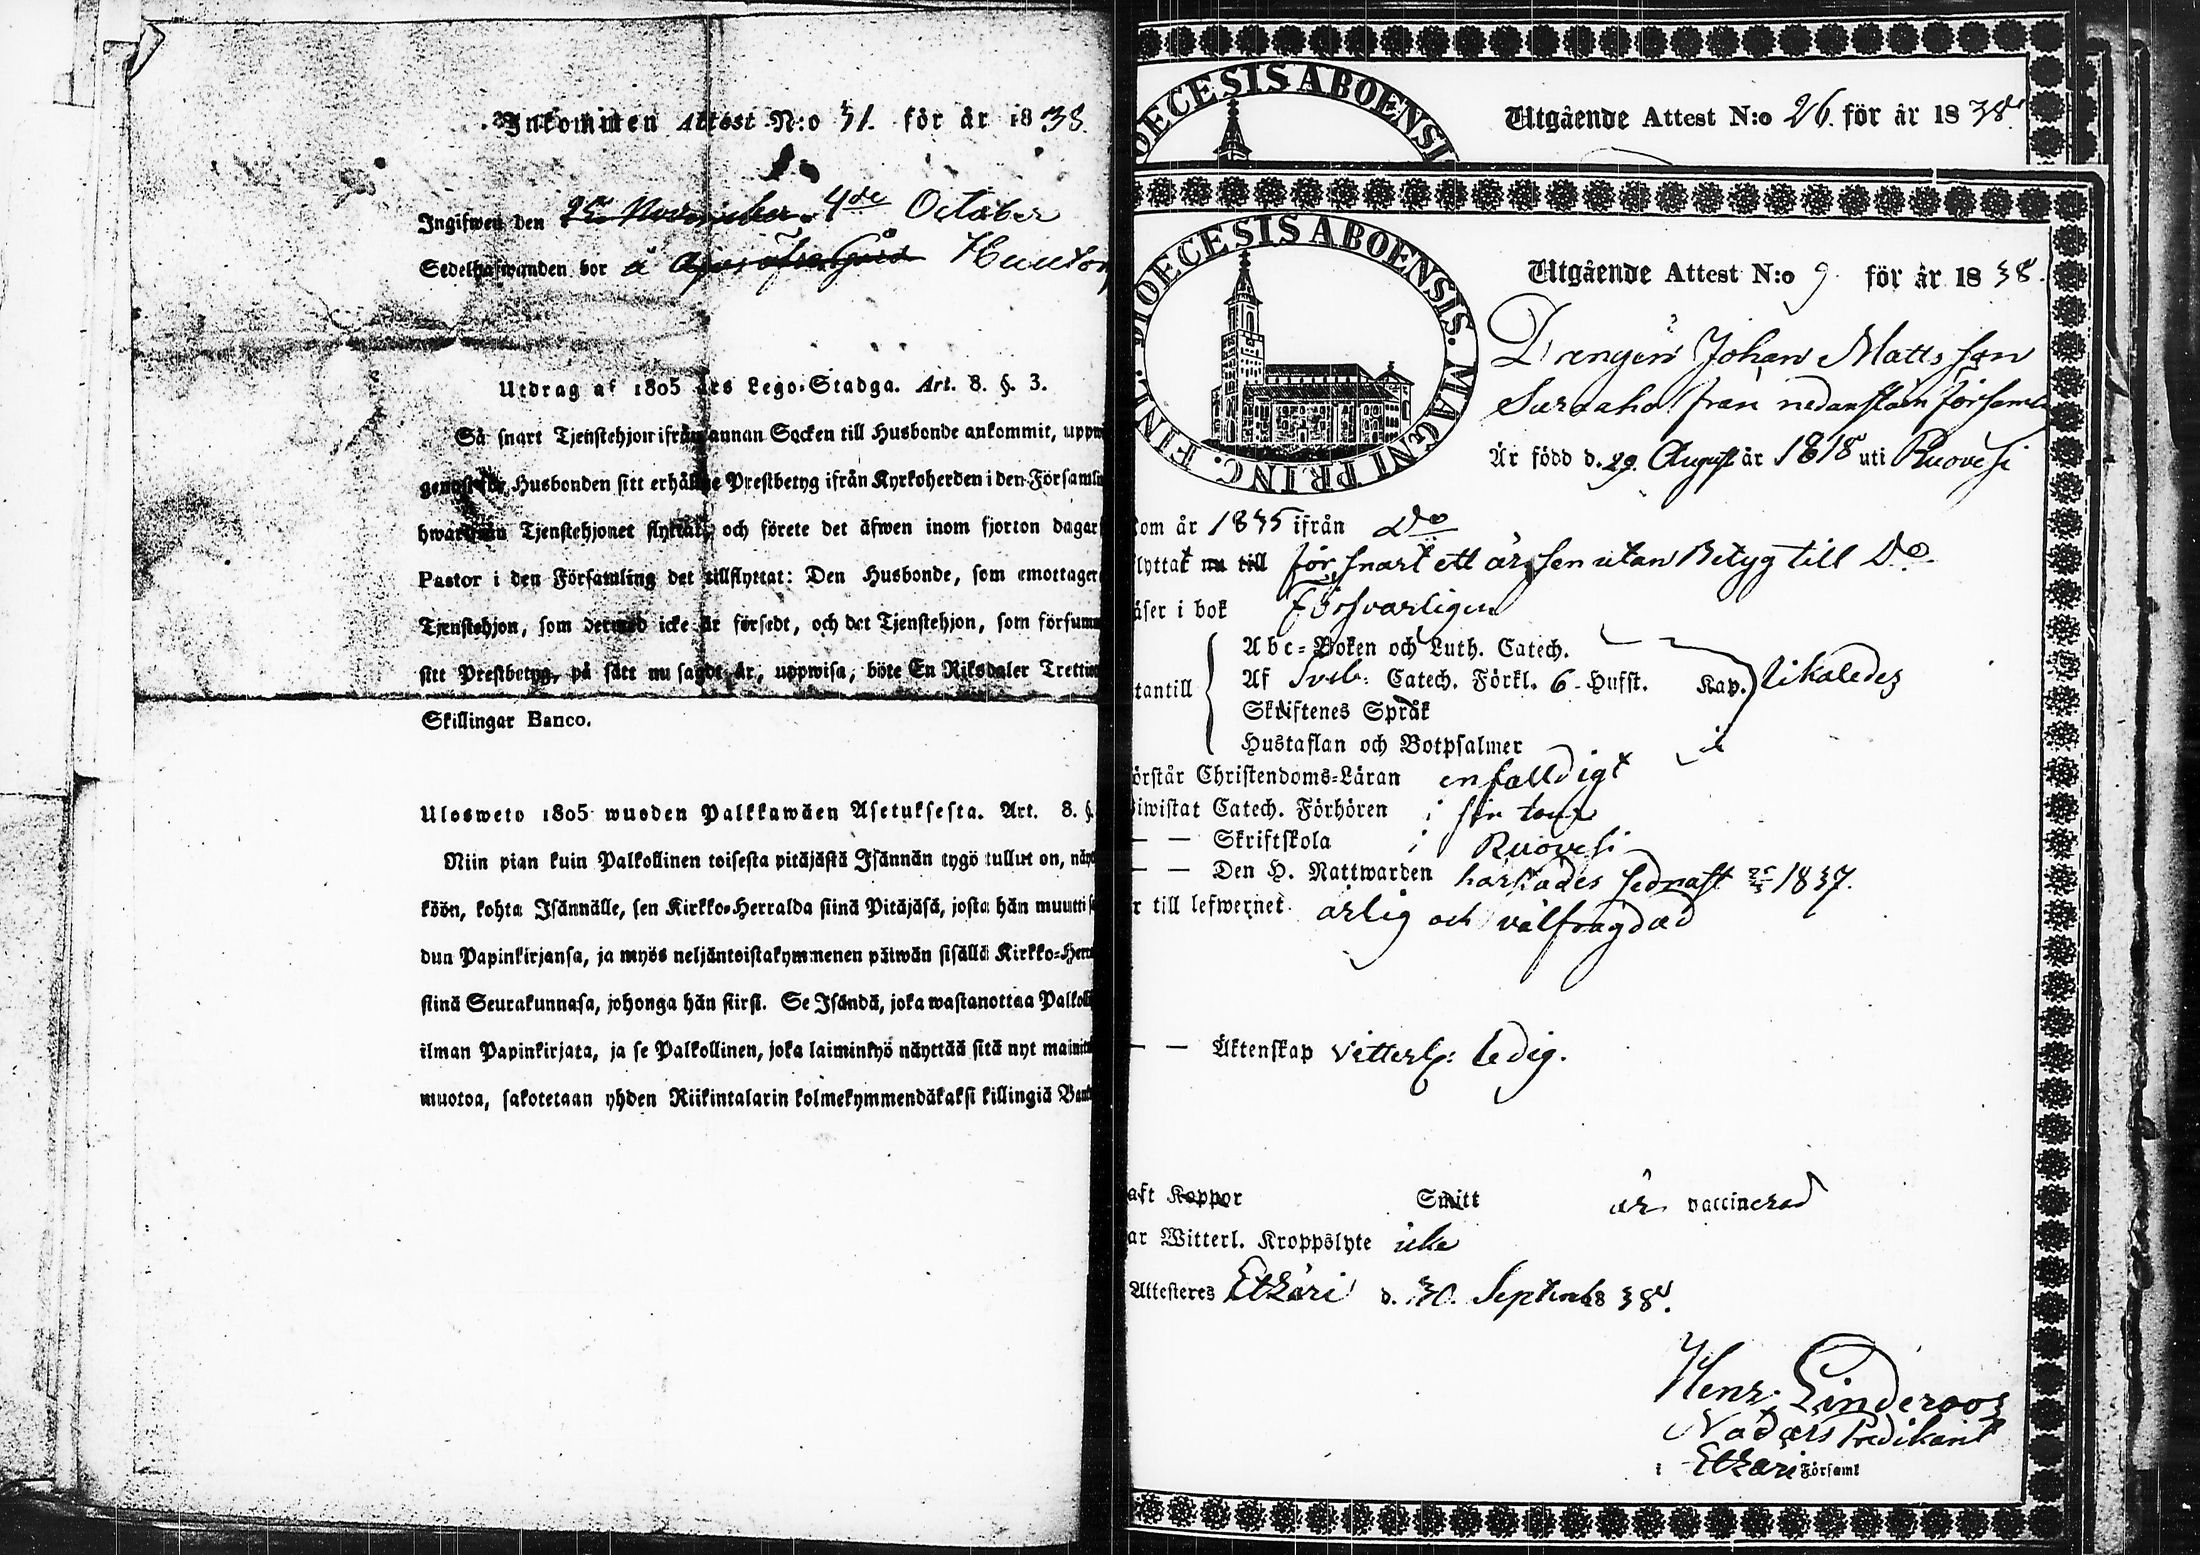 Inkommen Attest N:o 31. för år 1838.
Ingifwen den 2en November 4de October
Sedelhafwanden bor å
Utdrag af 1805 års Lego-Stadga. Art. 8. §. 3.
Så snart Tjenstehjon ifrån annan Socken till Husbonde ankommit, uppw
genast för Husbonden sitt erhållne Prestbetyg ifrån Kyrkoherden i den Församl
hwarifrån Tjenstehjonet flyttat, och förete det äfwen inom fjorton dagar
Pastor i den Församling det tillflyttat: Den Husbonde, som emottager
Tjenstehjon, som dermed icke är försedt, och det Tjenstehjon, som försum
sitt Prestbetyg, på sätt nu sagdt är, uppwisa, böte En Riksdaler Trettio
Skillingar Banco.
Ulosweto 1805 wuoden Palkkawäen Asetuksesta. Art. 8. §.
Niin pian kuin Palkollinen toisesta pitäjästä Isännän tygö tullut on, näyt
köön, kohta Isännälle, sen Kirkko-Herralda siinä Pitäjäsä, josta hän muutti
dun Papinkirjansa, ja myös neljäntoistakymmenen päiwän sisällä Kirkko-Herr
siinä Seurakunnasa, johonga hän siirsi. Se Isändä, joka wastanottaa Palkoll
ilman Papinkirjata, ja se Palkollinen, joka laiminlyö näyttää sitä nyt mainit
muotoa, sakotetaan yhden Riikintalarin kolmekymmendäkaksi killingiä Ban
DIOECESIS ABOENSI
Utgående Attest N:o 26. för år 1838.
FINL. DIOECESIS ABOENSIS. MAGNI PRINC.
Utgående Attest N:o 9. för år 1838.
Drengen Johan Mattsson
från nedanstående församl
Är född d. 29 August år 1818 uti Ruovesi
kom år 1835 ifrån Do
flyttat nu till för snart ett år sen utan Betyg till Do
läser i bok Försvarligen
Abc-Boken och Luth. Catech.
tantill Af Sveb: Catech. Förkl. 6 Hufst. Kap. likaledes
Skriftenes Språk
Hustaflan och Botpsalmer
örstår Christendoms-Läran enfalldigt
Biwistat Catech. Förhören i sin tour
— — Skriftskola i Ruovesi
— — Den H. Nattwarden härstädes sednast 1837.
r till lefwernet ärlig och välfrägdad
— — Äktenskap vitterl: ledig.
aft Koppor Smitt är vaccinerad
ar Witterl. Kroppslyte icke
Attesteres Etzäri d. 30. Septemb 1838.
Henr. Linderoos
Nådårs Predikant
i Etzäri Församl